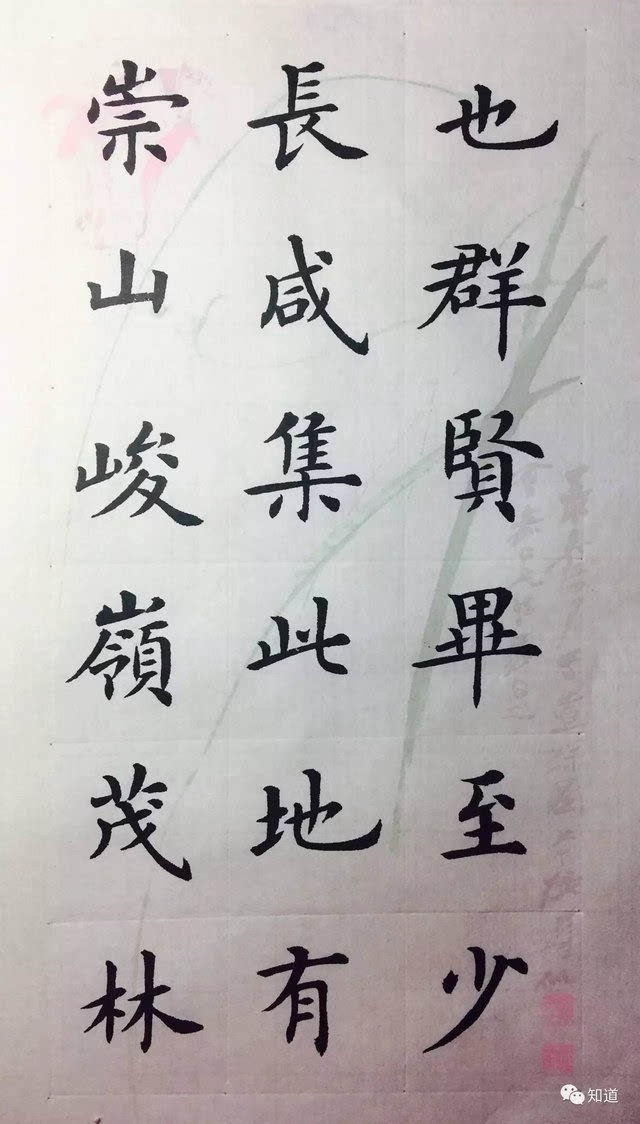 也群賢畢至少
長咸集此地有
崇山峻嶺茂林
知道